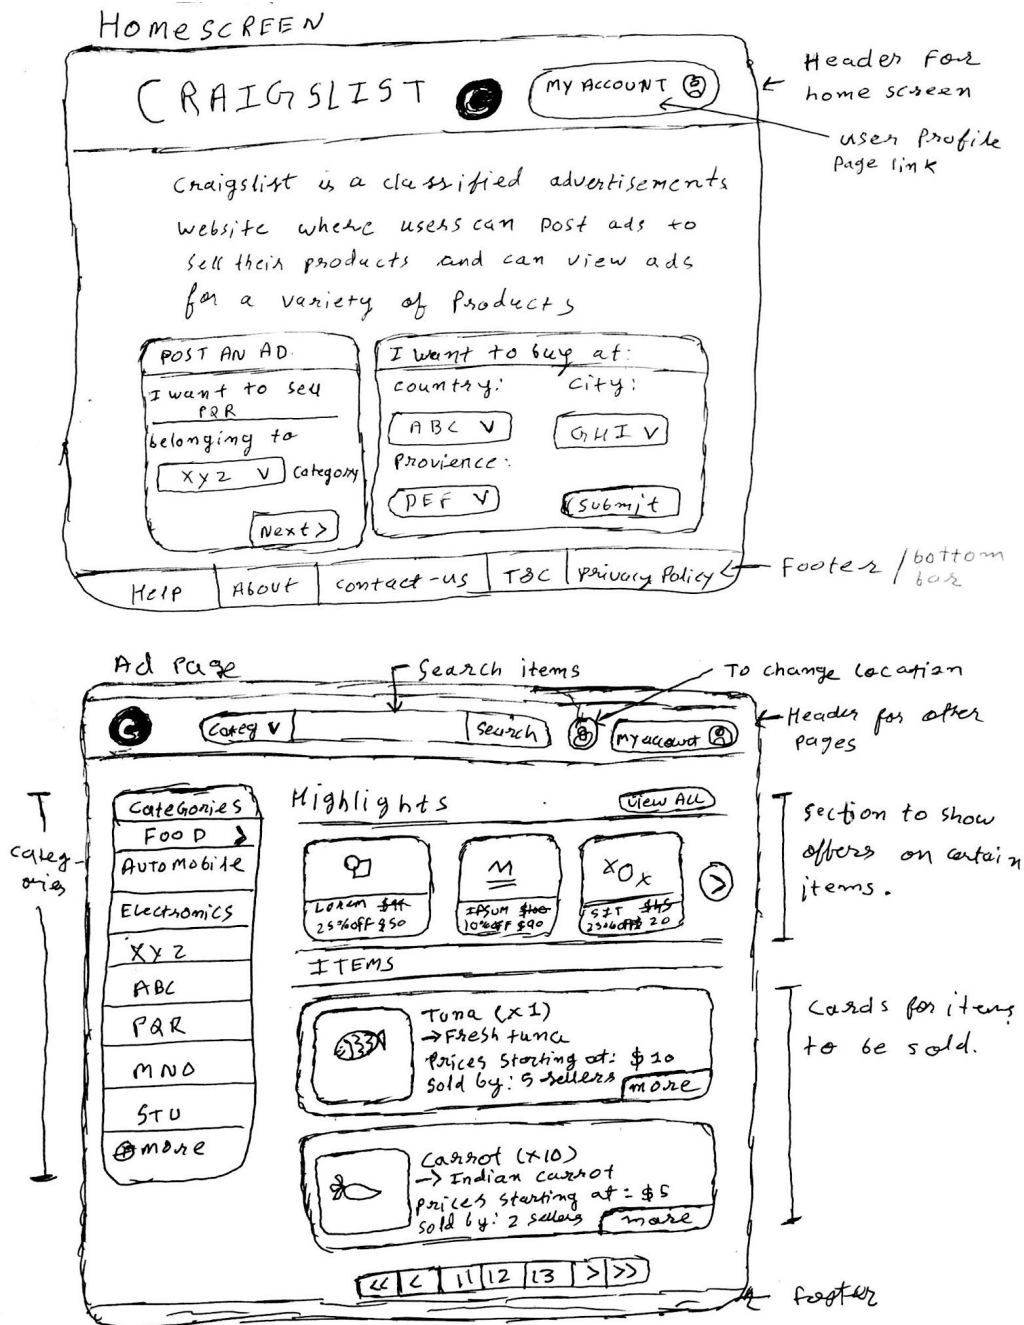 HOMESCREEN
CRAIGSLIST C MY ACCOUNT
Header For
home screen
user Profile
Page link
Craigslist is a classified advertisements
website where users can post ads to
sell their products and can view ads
for a variety of Products
POST AN AD.
I want to sell
PQR
belonging to
XYZ V Category
Next >
I want to buy at:
country: City:
ABC V GHI V
Provience:
DEF V Submit
Help About Contact-us T&C Privacy Policy
Footer / bottom
bar
Ad Page
Search items
To change Location
C Categ V Search My account
Header for other
pages
categ-
ories
Categories
FOOD >
AutoMobile
Electronics
XYZ
ABC
PQR
MNO
STU
more
Highlights View ALL
Lorem
25% off $50
IPSUM $100
10% off $90
SIT
25% off $ 20
>
section to show
offers on certain
items.
ITEMS
Tuna (x1)
→ Fresh tuna
Prices starting at: $10
Sold by: 5 sellers more
Carrot (x10)
→ Indian carrot
Prices starting at: $5
Sold by: 2 sellers more
Cards for items
to be sold.
<< < 11 12 13 > >>
footer